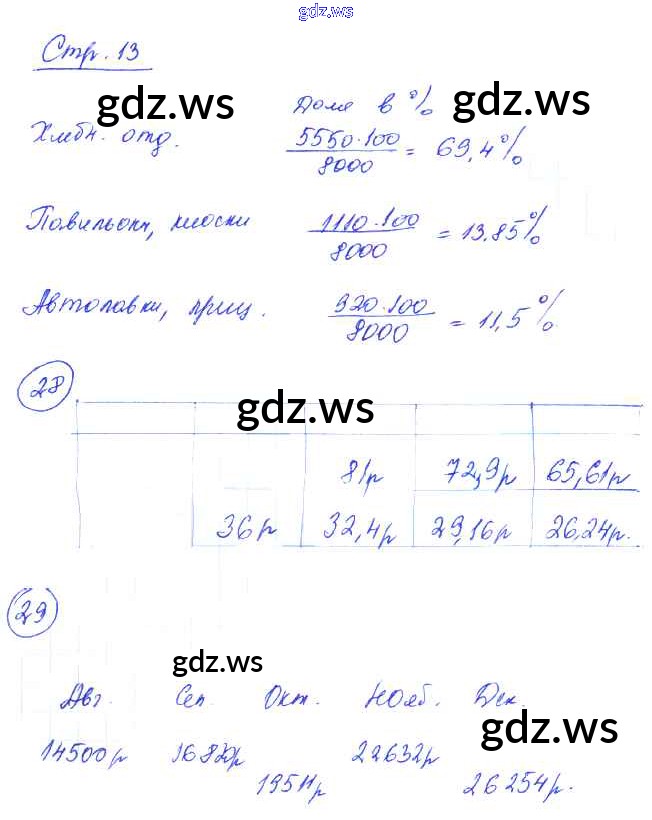 gdz.ws
Стр. 13
gdz.ws
gdz.ws
Доля в %
Хлебн. отд. 5550·100/8000 = 69,4%
Павильоны, киоски 1110·100/8000 = 13,85%
Автолавки, приц. 920·100/8000 = 11,5%
28
gdz.ws
81р 72,9р 65,61р
36р 32,4р 29,16р 26,24р.
29
gdz.ws
Авг. Сен. Окт. Нояб. Дек.
gdz.ws
14500р 16820р 22632р
19511р 26254р.